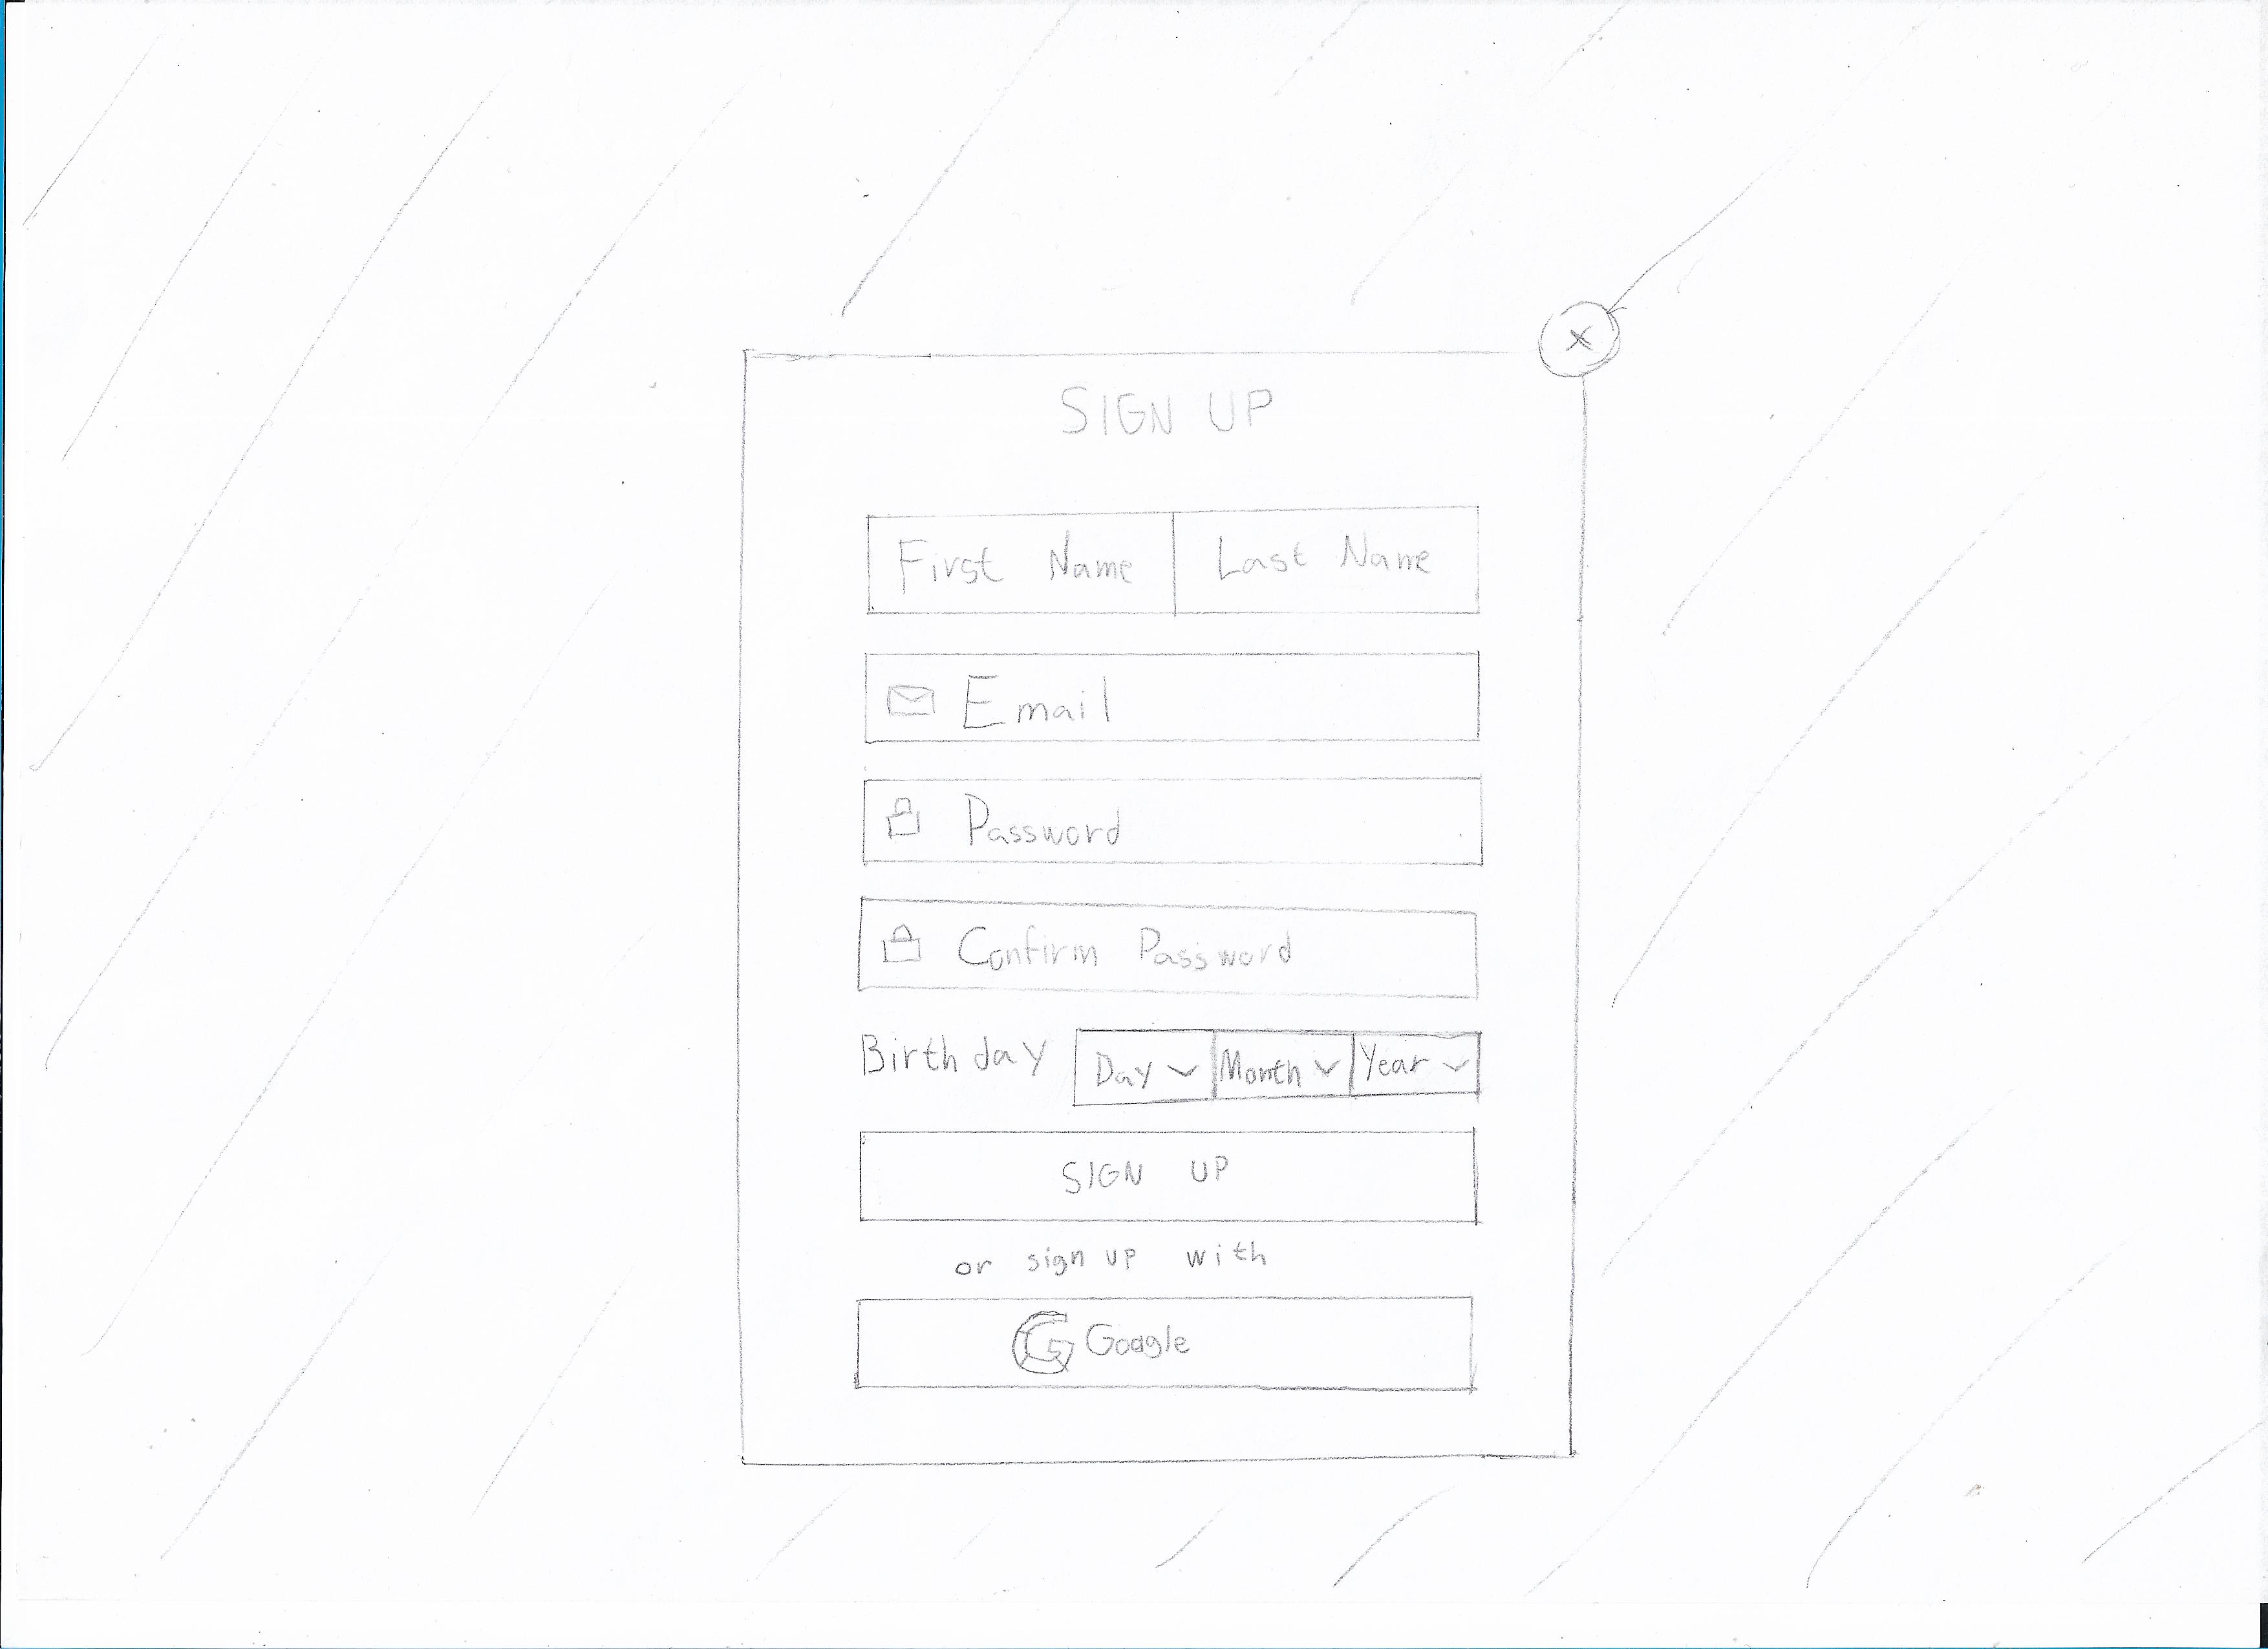 SIGN UP
First Name Last Name
Email
Password
Confirm Password
Birthday Day Month Year
SIGN UP
or sign up with
G Google